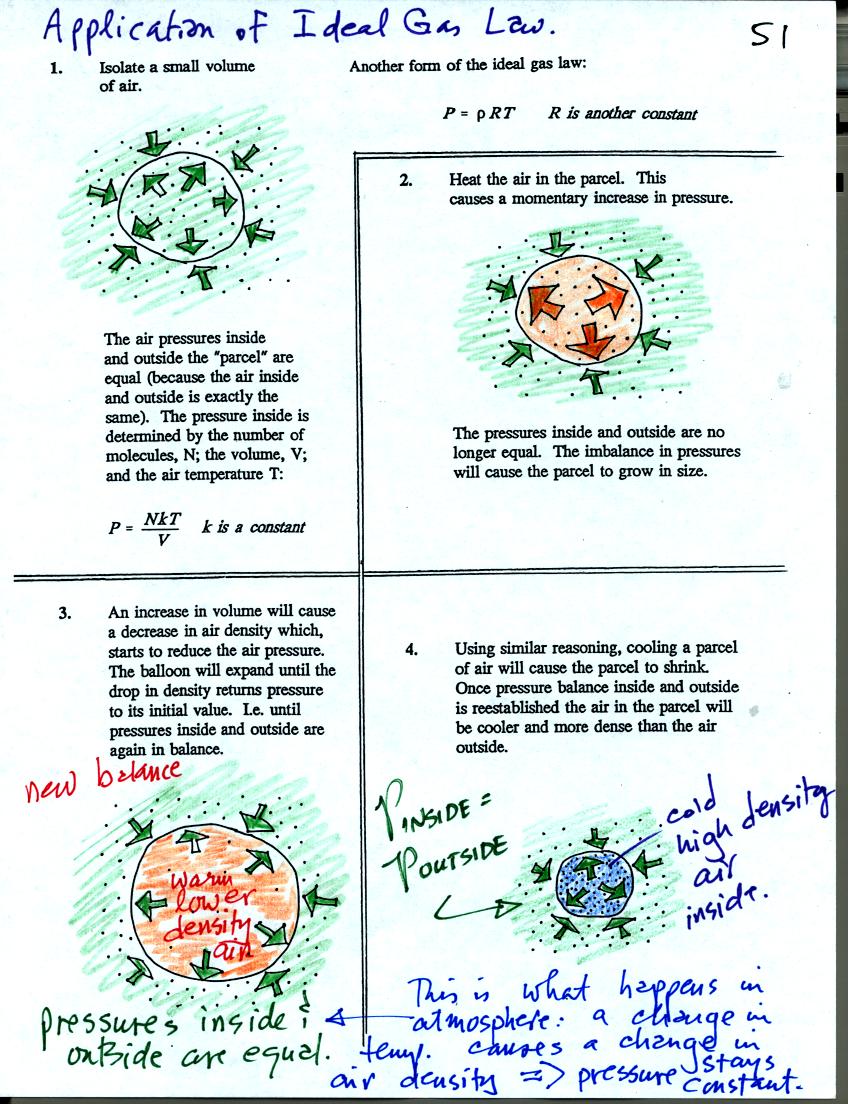 Application of Ideal Gas Law.
51
1. Isolate a small volume
of air.
Another form of the ideal gas law:
P = ρRT R is another constant
2. Heat the air in the parcel. This
causes a momentary increase in pressure.
The air pressures inside
and outside the "parcel" are
equal (because the air inside
and outside is exactly the
same). The pressure inside is
determined by the number of
molecules, N; the volume, V;
and the air temperature T:
P = NkT/V k is a constant
The pressures inside and outside are no
longer equal. The imbalance in pressures
will cause the parcel to grow in size.
3. An increase in volume will cause
a decrease in air density which,
starts to reduce the air pressure.
The balloon will expand until the
drop in density returns pressure
to its initial value. I.e. until
pressures inside and outside are
again in balance.
new balance
warm
lower
density
air
pressures inside &
outside are equal.
4. Using similar reasoning, cooling a parcel
of air will cause the parcel to shrink.
Once pressure balance inside and outside
is reestablished the air in the parcel will
be cooler and more dense than the air
outside.
P INSIDE =
P OUTSIDE
cold
high density
air
inside.
This is what happens in
atmosphere: a change in
temp. causes a change in
air density => pressure stays
constant.